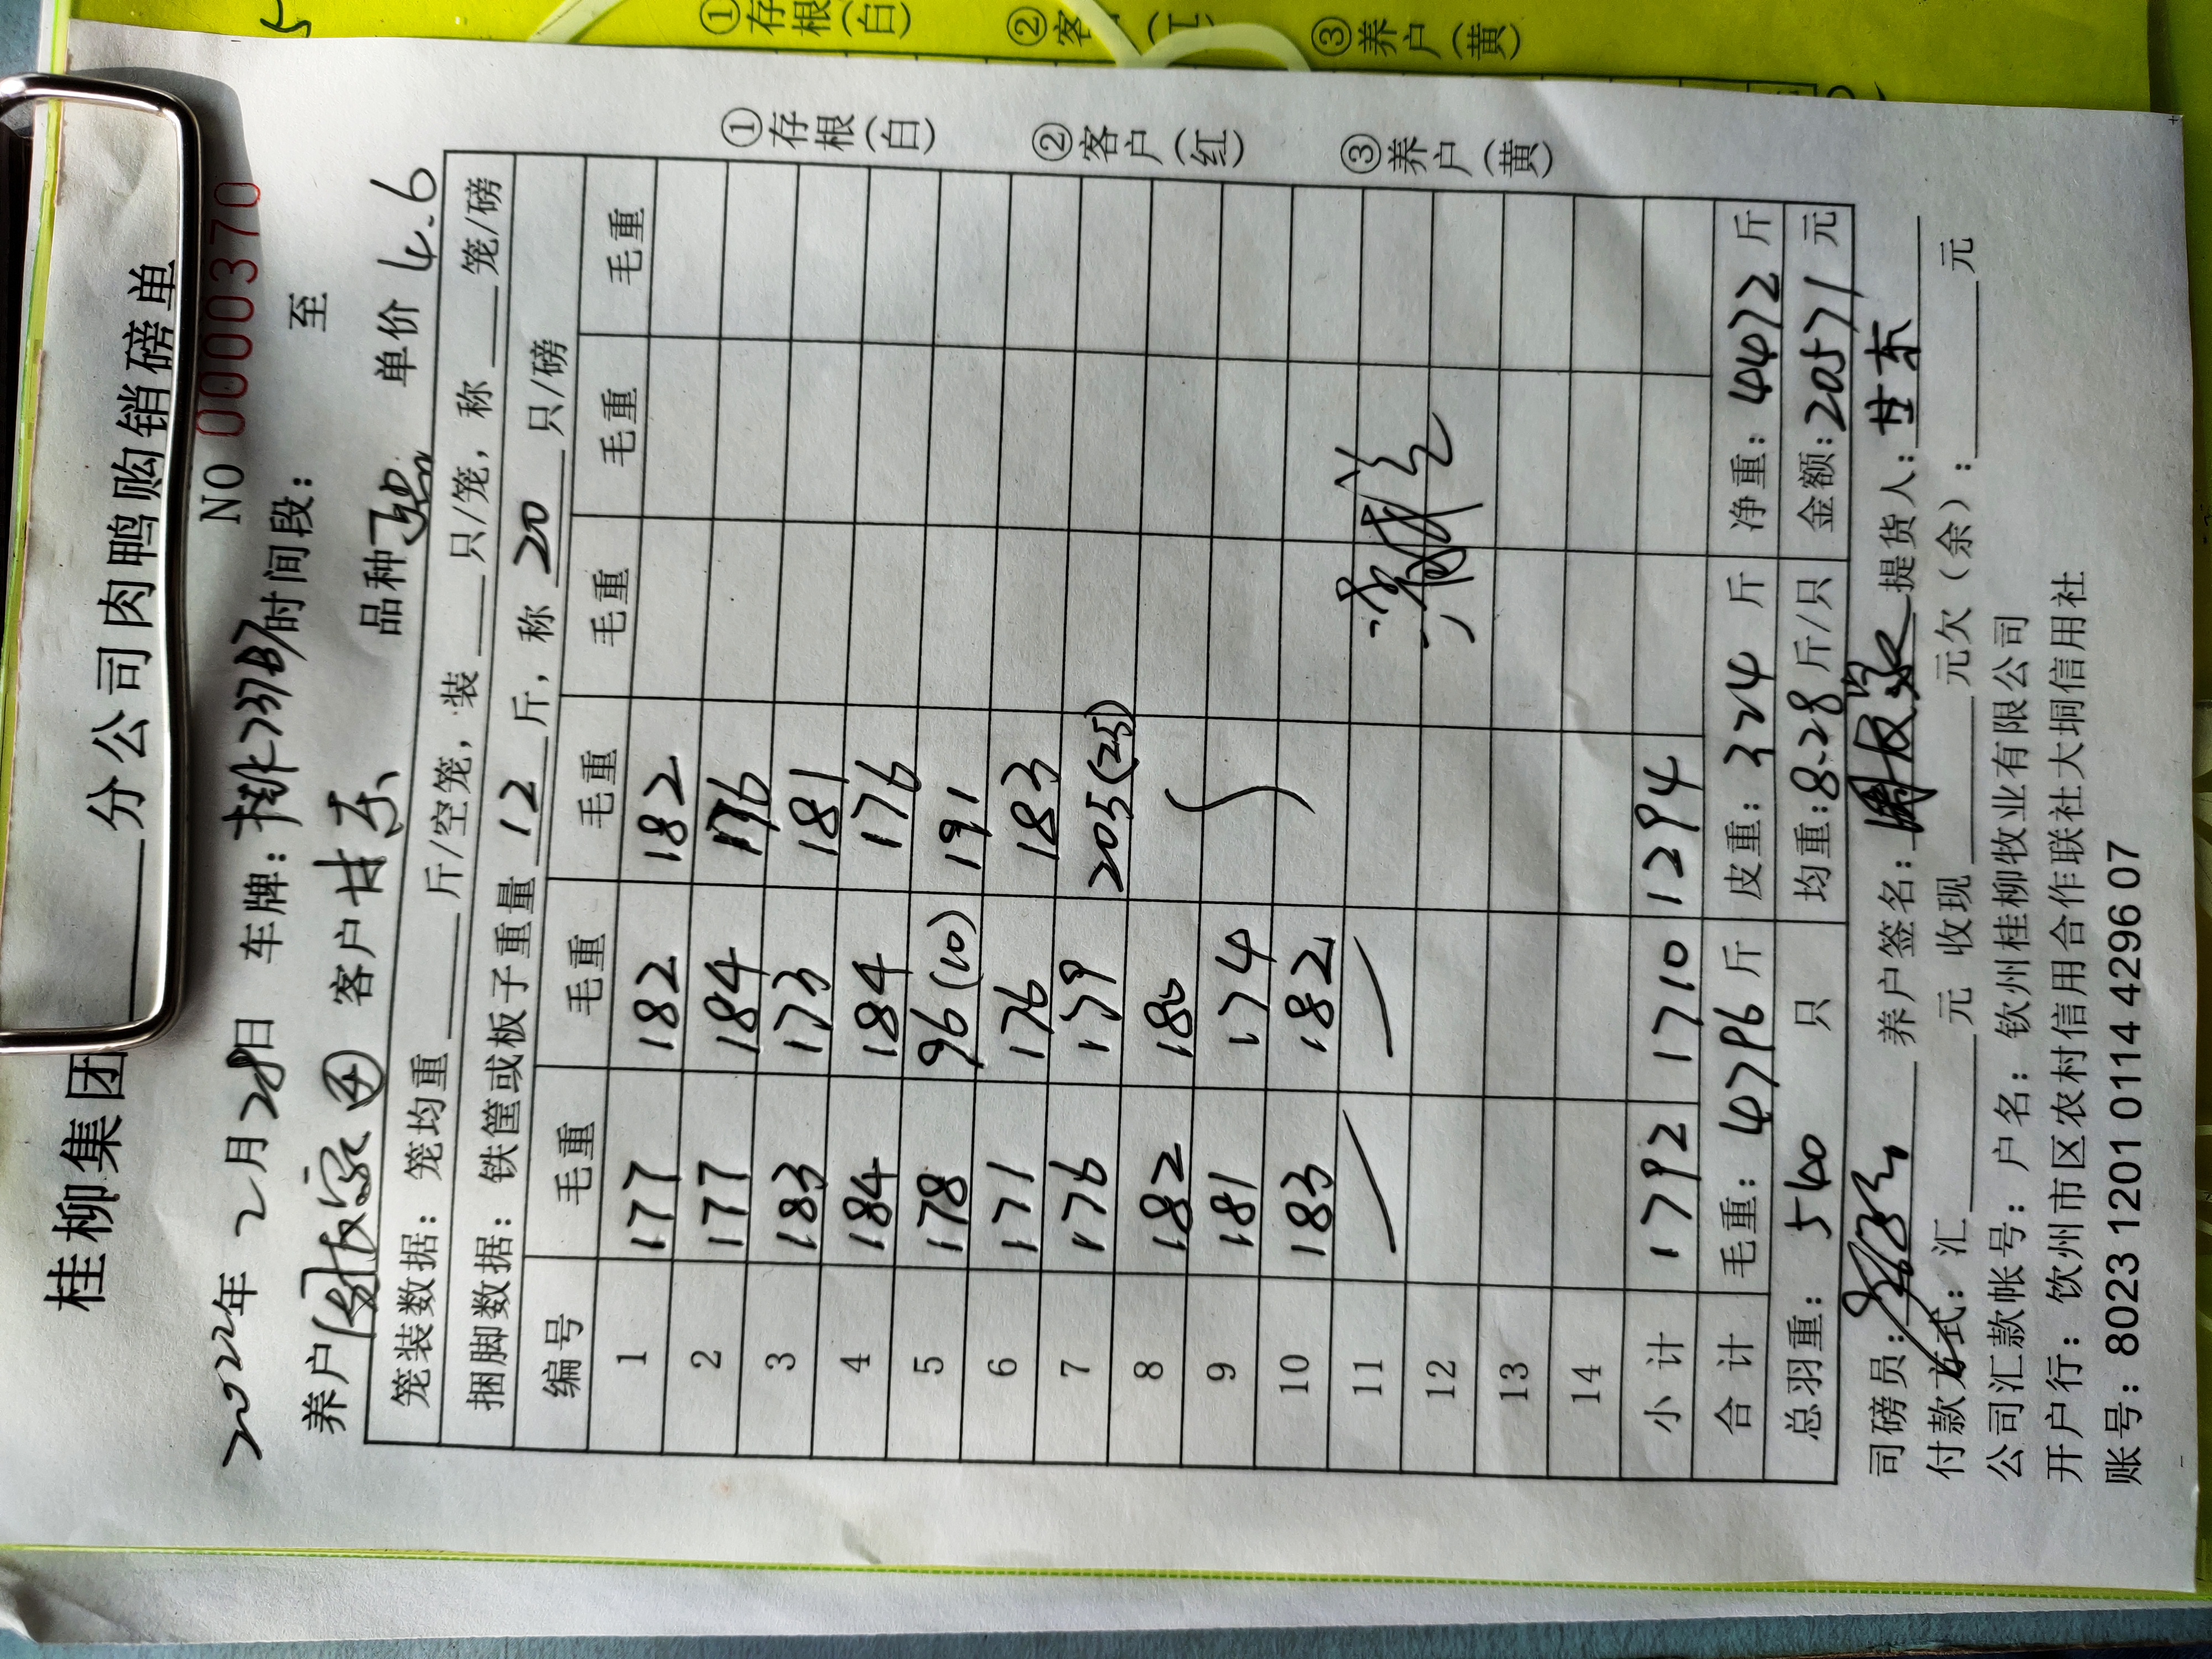 桂柳集团 分公司肉鸭购销磅单
NO 0000370
2022年 2月28日 车牌: 237B 时间段: 至
养户 ④ 客户 甘东 品种 单价 4.6
笼装数据: 笼均重 斤/空笼, 装 只/笼, 称 笼/磅
捆脚数据: 铁筐或板子重量 12 斤, 称 20 只/磅
编号 毛重 毛重 毛重 毛重 毛重 毛重
1 177 182 182
2 177 184 176
3 183 173 181
4 184 184 176
5 178 96(10) 191
6 171 176 183
7 176 179 205(25)
8 182 180
9 181 174
10 183 182
11
12
13
14
小计 1792 1710 1294
合计 毛重: 4796 斤 皮重: 324 斤 净重: 4472 斤
总羽重: 540 只 均重: 8.28 斤/只 金额: 20571 元
司磅员: 养户签名: 提货人: 甘东
付款方式: 汇 元 收现 元欠(余): 元
公司汇款帐号: 户名: 钦州桂柳牧业有限公司
开户行: 钦州市市区农村信用合作联社大垌信用社
账号: 8023 1201 0114 4296 07
①存根(白)
②客户(红)
③养户(黄)
①存根(白)
②客
③养户(黄)